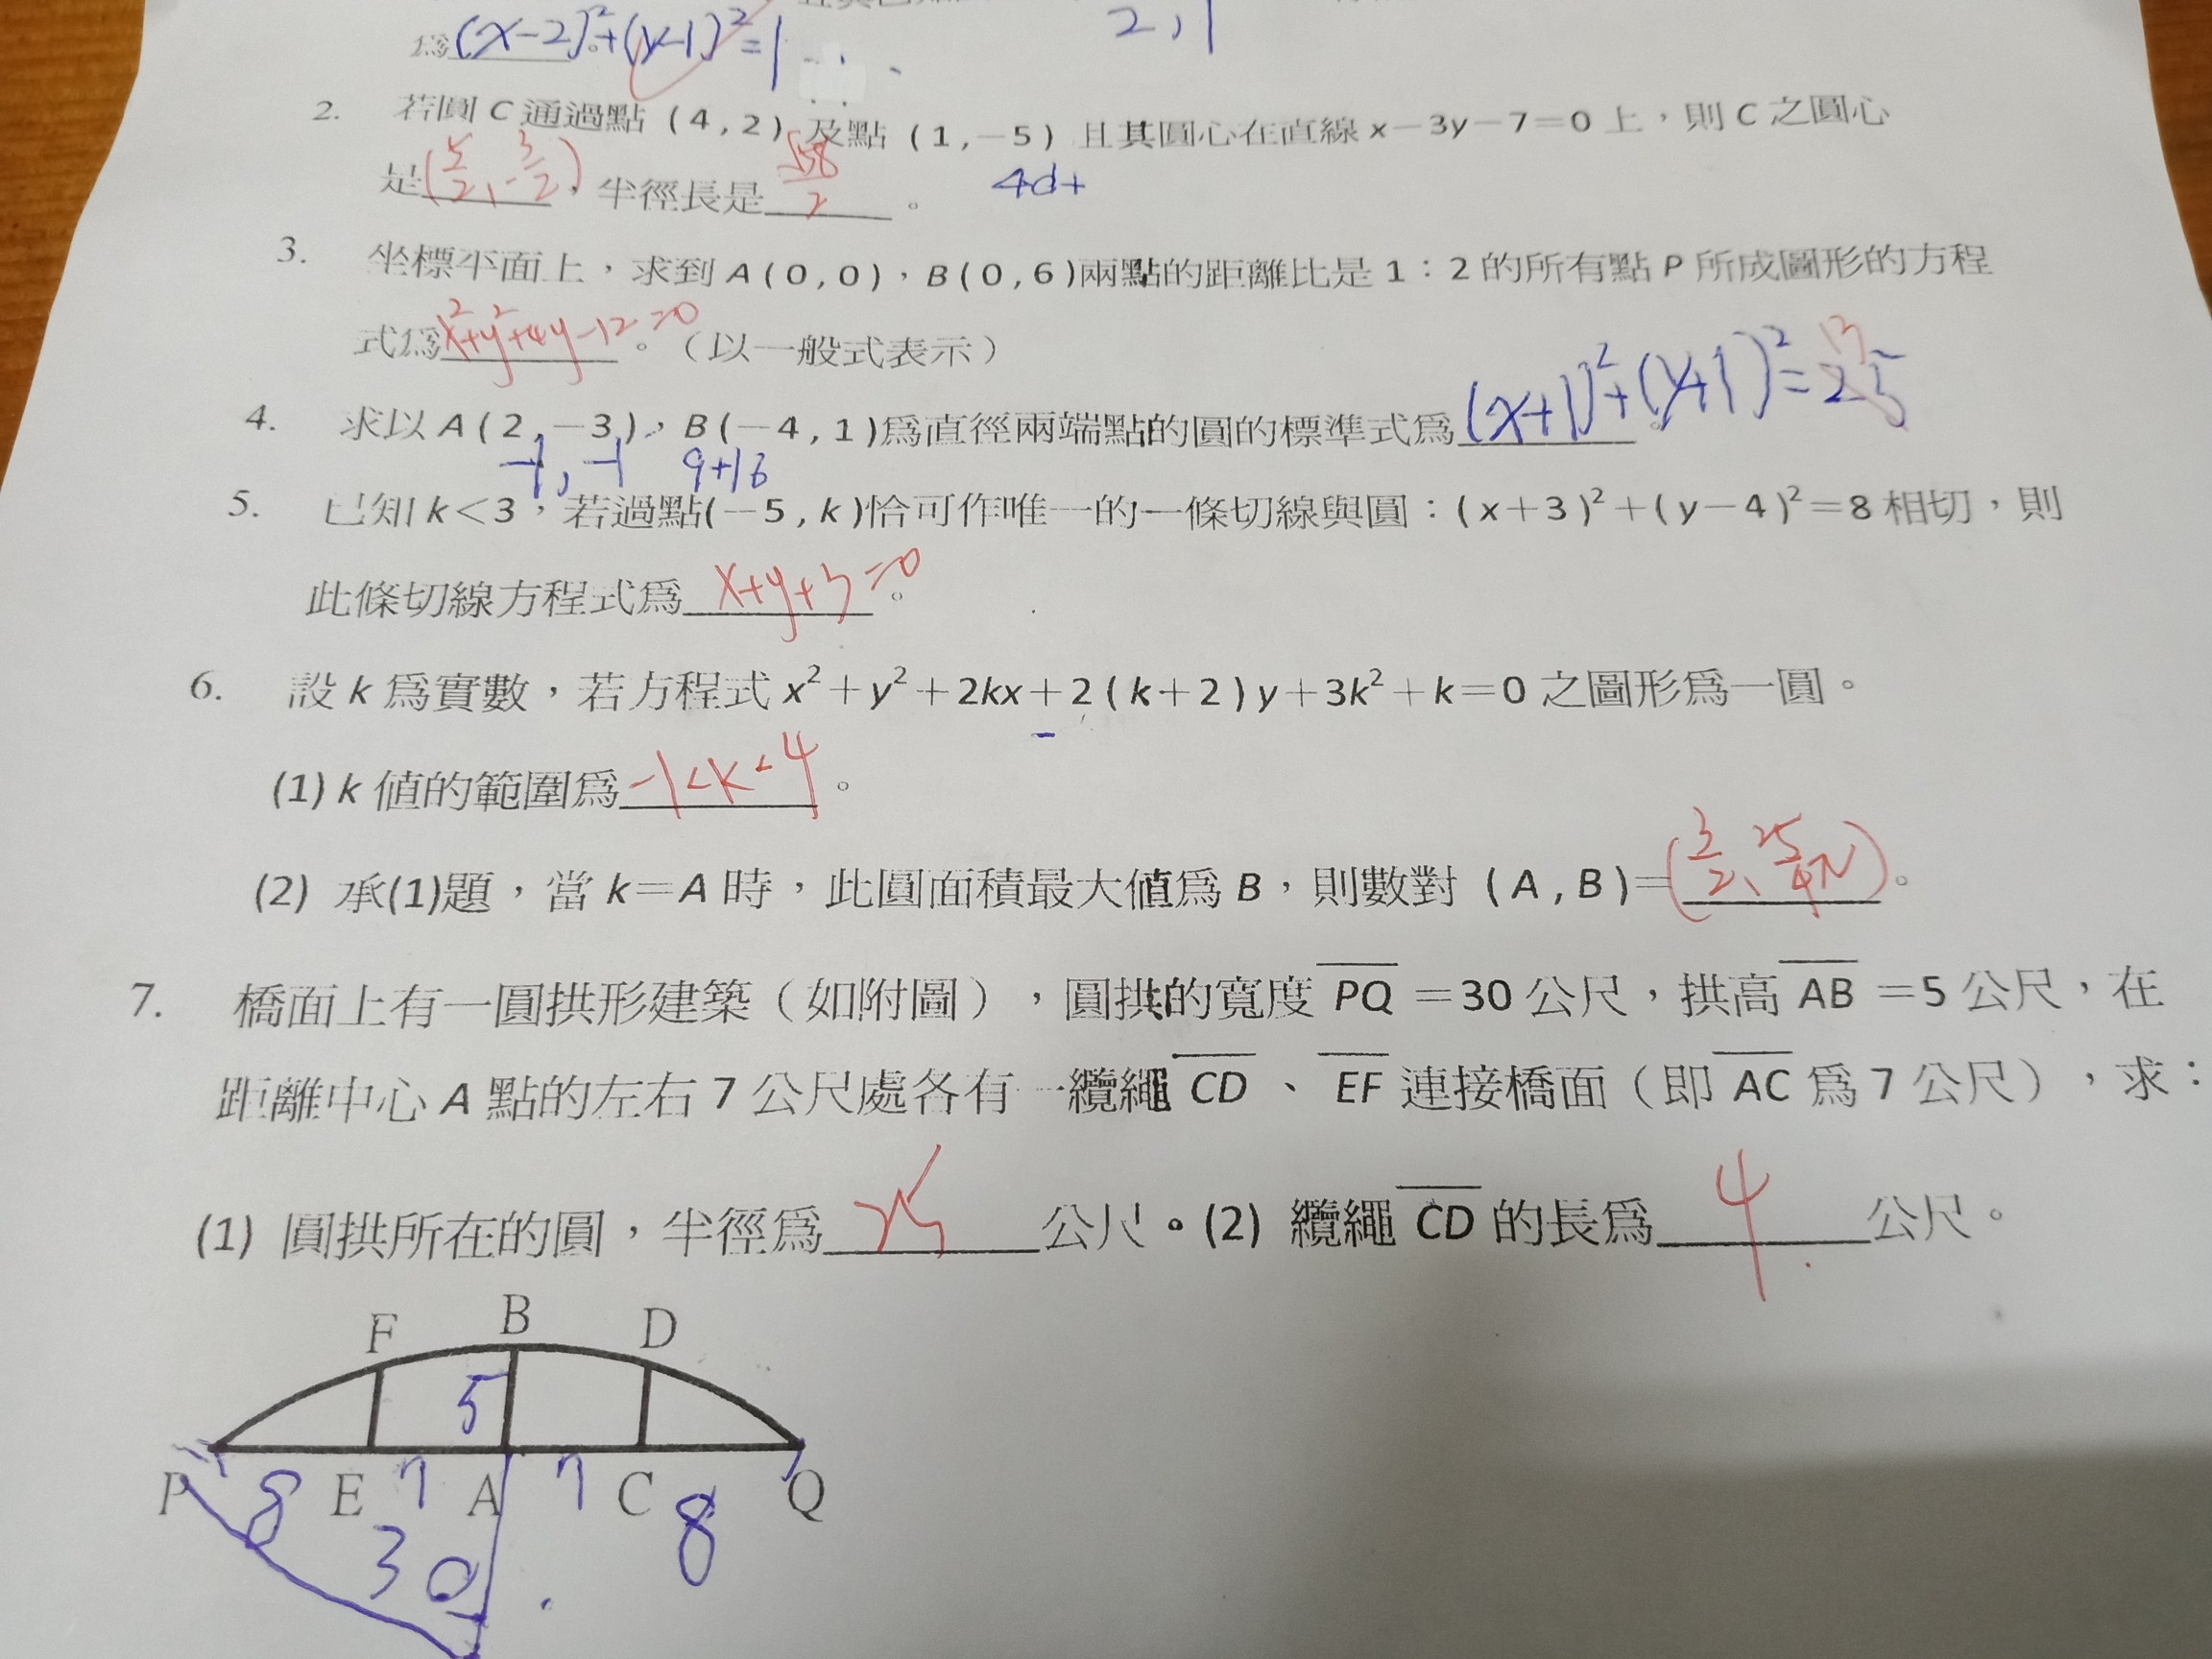 為(x-2)²+(y-1)²=1 2,1
2. 若圓 C 通過點 (4,2) 及點 (1,-5) 且其圓心在直線 x-3y-7=0 上,則 C 之圓心
是(5/2,-3/2),半徑長是√58/2。 4d+
3. 坐標平面上,求到 A(0,0),B(0,6)兩點的距離比是 1:2 的所有點 P 所成圖形的方程
式為x²+y²+4y-12=0。(以一般式表示)
4. 求以 A(2,-3),B(-4,1)為直徑兩端點的圓的標準式為(x+1)²+(y+1)²=25 13
-1,-1 9+16
5. 已知 k<3,若過點(-5,k)恰可作唯一的一條切線與圓:(x+3)²+(y-4)²=8 相切,則
此條切線方程式為x+y+3=0。
6. 設 k 為實數,若方程式 x²+y²+2kx+2(k+2)y+3k²+k=0 之圖形為一圓。
(1) k 值的範圍為-1<k<4。
(2) 承(1)題,當 k=A 時,此圓面積最大值為 B,則數對 (A,B)=(3/2,25/4π)。
7. 橋面上有一圓拱形建築(如附圖),圓拱的寬度 PQ=30 公尺,拱高 AB=5 公尺,在
距離中心 A 點的左右 7 公尺處各有一纜繩 CD、EF 連接橋面(即 AC 為 7 公尺),求:
(1) 圓拱所在的圓,半徑為25公尺。(2) 纜繩 CD 的長為4公尺。
F B D
5
P E A C Q
8 7 7 8
30